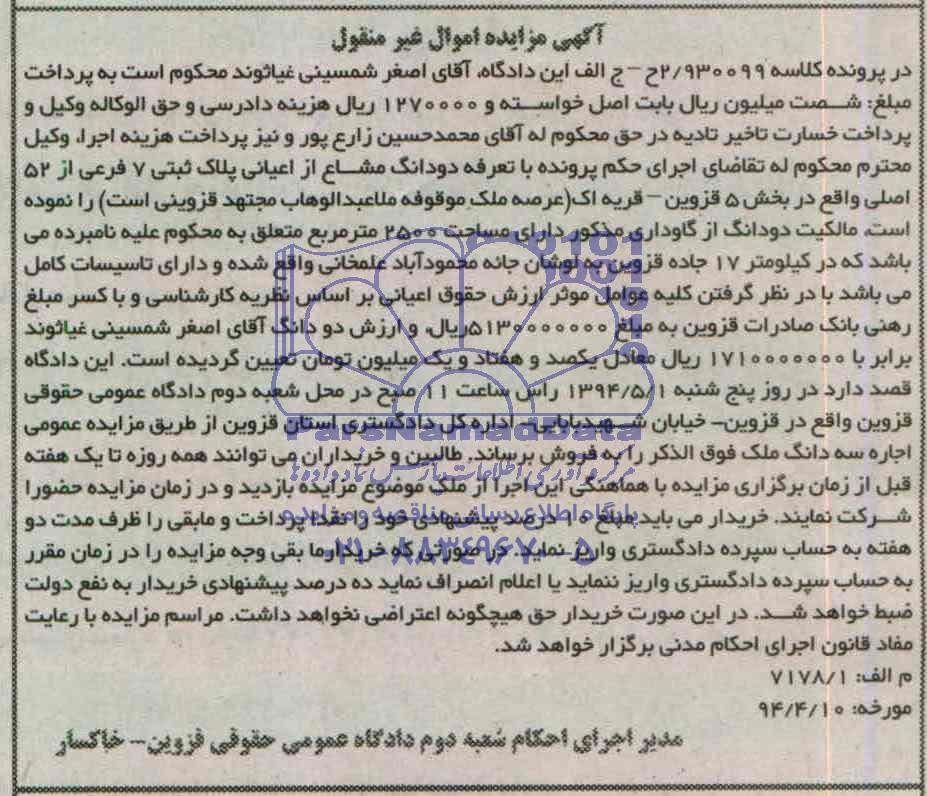 آگهی مزایده اموال غیر منقول
در پرونده کلاسه ۲/۹۳۰۰۹۹ح – ج الف این دادگاه، آقای اصغر شمسینی غیاثوند محکوم است به پرداخت
مبلغ: شصت میلیون ریال بابت اصل خواسته و ۱۲۷۰۰۰۰ ریال هزینه دادرسی و حق الوکاله وکیل و
پرداخت خسارت تاخیر تادیه در حق محکوم له آقای محمدحسین زارع پور و نیز پرداخت هزینه اجرا، وکیل
محترم محکوم له تقاضای اجرای حکم پرونده با تعرفه دودانگ مشاع از اعیانی پلاک ثبتی ۷ فرعی از ۵۲
اصلی واقع در بخش ۵ قزوین – قریه اک(عرصه ملک موقوفه ملاعبدالوهاب مجتهد قزوینی است) را نموده
است، مالکیت دودانگ از گاوداری مذکور دارای مساحت ۲۵۰۰ مترمربع متعلق به محکوم علیه نامبرده می
باشد که در کیلومتر ۱۷ جاده قزوین به لوشان جانه محمودآباد علمخانی واقع شده و دارای تاسیسات کامل
می باشد با در نظر گرفتن کلیه عوامل موثر ارزش حقوق اعیانی بر اساس نظریه کارشناسی و با کسر مبلغ
رهنی بانک صادرات قزوین به مبلغ ۵۱۳۰۰۰۰۰۰۰ریال، و ارزش دو دانگ آقای اصغر شمسینی غیاثوند
برابر با ۱۷۱۰۰۰۰۰۰۰ ریال معادل یکصد و هفتاد و یک میلیون تومان تعیین گردیده است. این دادگاه
قصد دارد در روز پنج شنبه ۱۳۹۴/۵/۱ راس ساعت ۱۱ صبح در محل شعبه دوم دادگاه عمومی حقوقی
قزوین واقع در قزوین– خیابان شهیدبابایی– اداره کل دادگستری استان قزوین از طریق مزایده عمومی
اجاره سه دانگ ملک فوق الذکر را به فروش برساند. طالبین و خریداران می توانند همه روزه تا یک هفته
قبل از زمان برگزاری مزایده با هماهنگی این اجرا از ملک موضوع مزایده بازدید و در زمان مزایده حضورا
شرکت نمایند. خریدار می باید مبلغ ۱۰ درصد پیشنهادی خود را نقدا پرداخت و مابقی را ظرف مدت دو
هفته به حساب سپرده دادگستری واریز نماید. در صورتی که خریدار ما بقی وجه مزایده را در زمان مقرر
به حساب سپرده دادگستری واریز ننماید یا اعلام انصراف نماید ده درصد پیشنهادی خریدار به نفع دولت
ضبط خواهد شد. در این صورت خریدار حق هیچگونه اعتراضی نخواهد داشت. مراسم مزایده با رعایت
مفاد قانون اجرای احکام مدنی برگزار خواهد شد.
م الف: ۷۱۷۸/۱
مورخه: ۹۴/۴/۱۰
مدیر اجرای احکام شعبه دوم دادگاه عمومی حقوقی قزوین– خاکسار
ParsNamadData
مرکز فرآوری اطلاعات پارس نماد داده ها
پایگاه اطلاع رسانی مناقصه و مزایده
۰۲۱–۸۸۳۴۹۶۷۰–۵